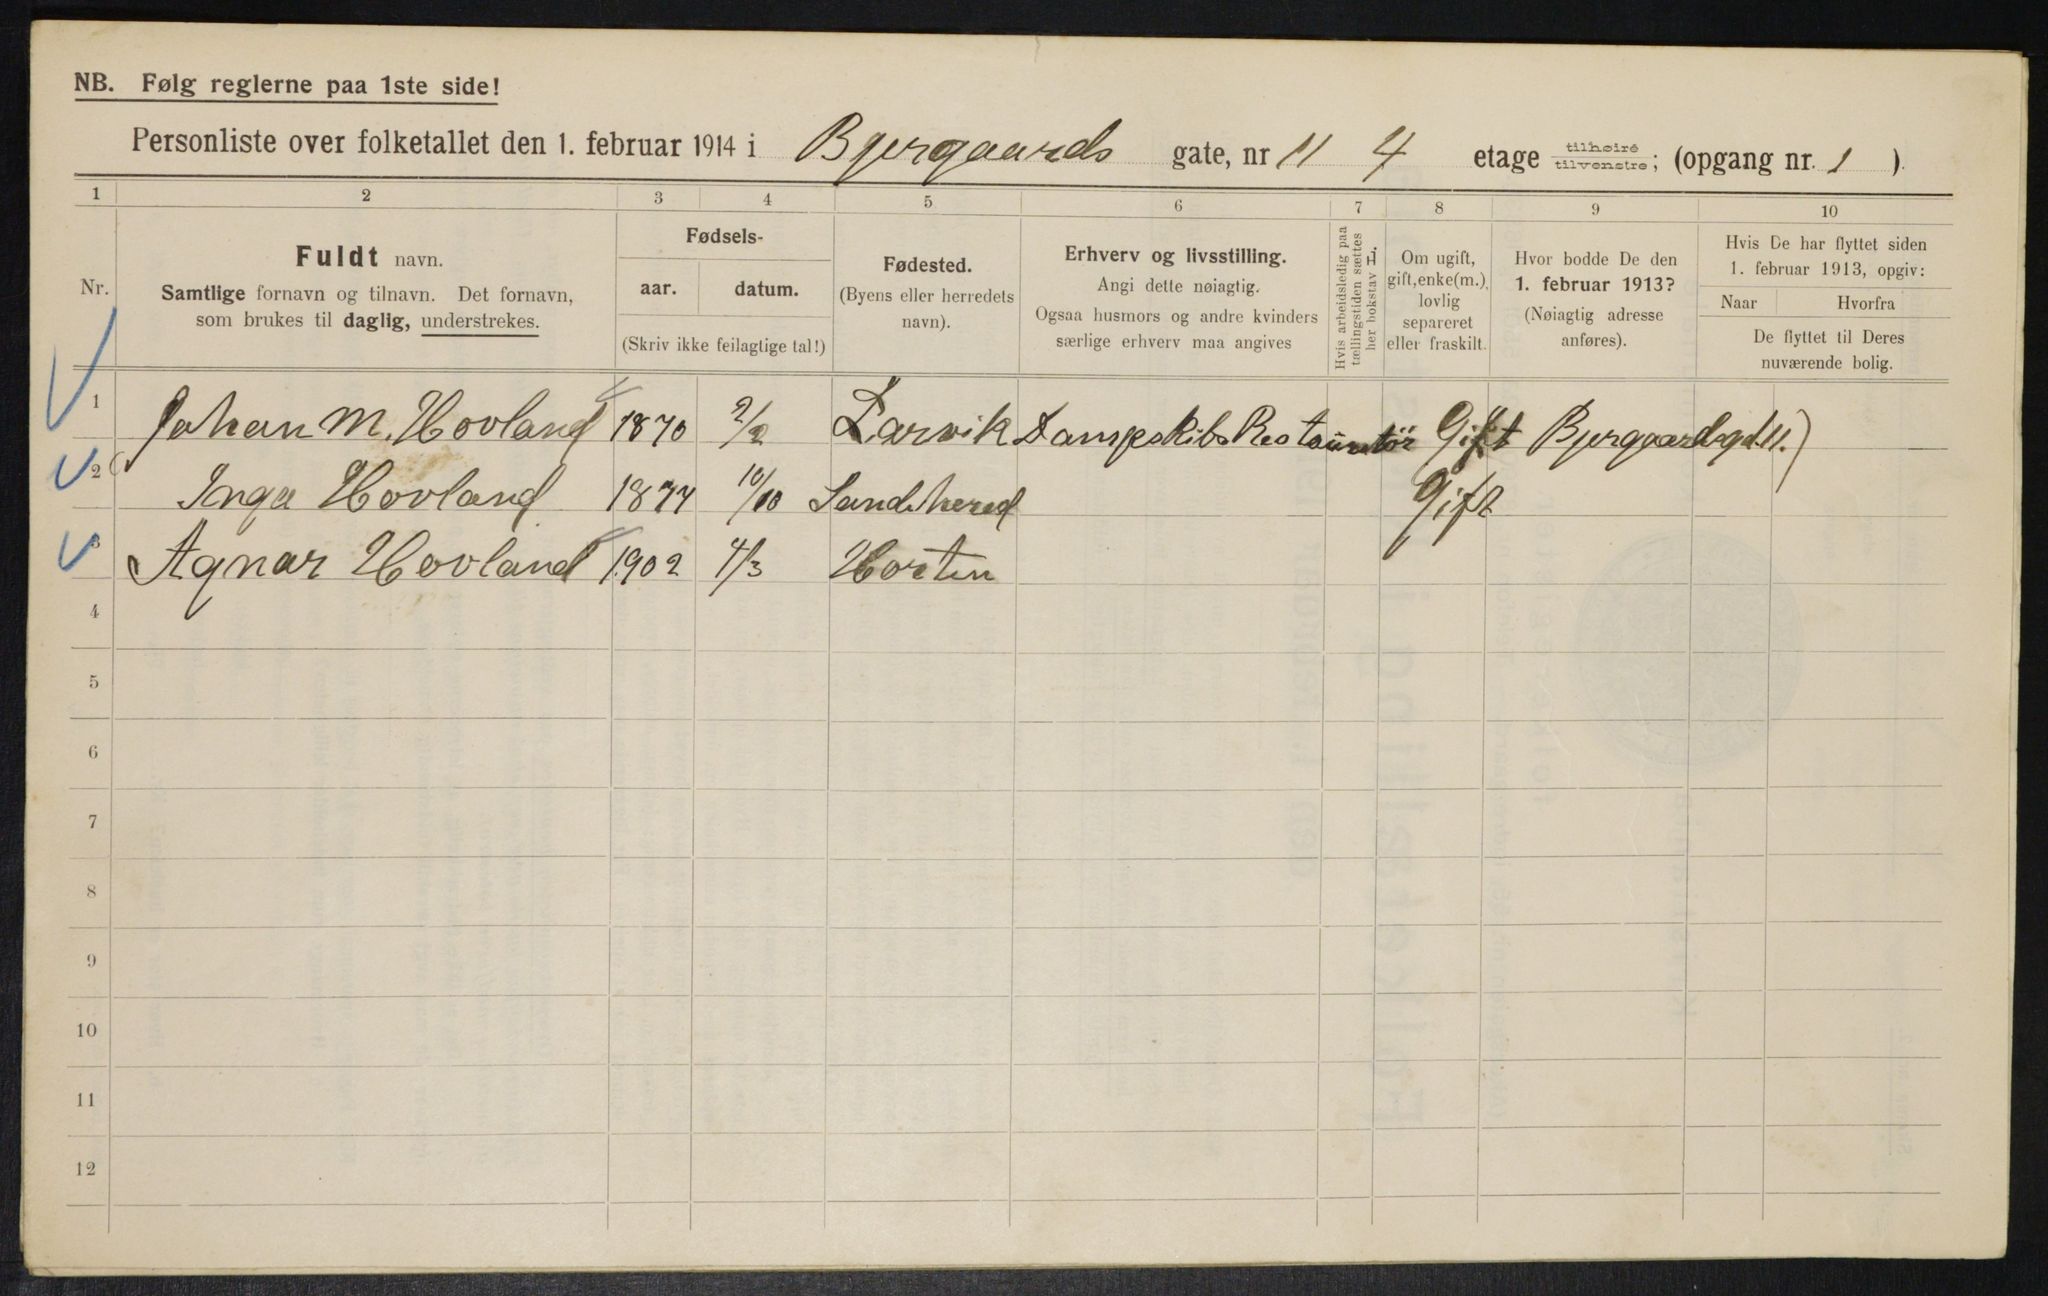 NB. Følg reglerne paa 1ste side!
Personliste over folketallet den 1. februar 1914 i Bjergaards gate, nr 11 4 etage tilhøire tilvenstre; (opgang nr. 1 ).
1 2 3 4 5 6 7 8 9 10
Nr.
Fuldt navn.
Samtlige fornavn og tilnavn. Det fornavn,
som brukes til daglig, understrekes.
Fødsels-
aar. datum.
(Skriv ikke feilagtige tal!)
Fødested.
(Byens eller herredets
navn).
Erhverv og livsstilling.
Angi dette nøiagtig.
Ogsaa husmors og andre kvinders
særlige erhverv maa angives
Hvis arbeidsledig paa
tællingstiden sættes
her bokstav H.
Om ugift,
gift, enke(m.),
lovlig
separeret
eller fraskilt.
Hvor bodde De den
1. februar 1913?
(Nøiagtig adresse
anføres).
Hvis De har flyttet siden
1. februar 1913, opgiv:
Naar Hvorfra
De flyttet til Deres
nuværende bolig.
1 Johan M. Hovland 1870 2/2 Larvik Dampskibs Restauratör Gift Bjergaardsgd. 11.)
2 Inga Hovland 1877 10/10 Sandeherred Gift
3 Agnar Hovland 1902 4/3 Horten
4
5
6
7
8
9
10
11
12